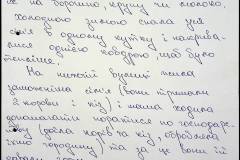 її на борошно, крупу чи молоко.
Холодною зимою спала уся
сім'я в одному кутку і накрива-
лися однією ковдрою, щоб було
тепліше.
На нашій вулиці жила
заможніша сім'я (вони тримали
2 корови і кіз) і наша ходила
допомагати поратися по господар-
ству (доїла корів та кіз, обробляла
їхню городину) та за це вони їй